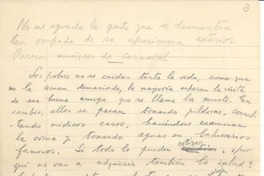 3
No me agrada la gente que se demuestra
tan ocupada de su apariencia exterior.
Parecen muñecos de carnaval
Los pobres no se cuidan tanto la vida, como que
no la aman demasiado, la mayoría esperan la visita
de esa buena amiga que se llama la muerte. En
cambio, ellos ricos están tomando píldoras, consul-
tando médicos caros, haciéndose examinar
la orina y tomando aguas en balnearios
famosos. Si todo lo pueden cobrar, ¿por
qué no van a adquirir también la salud?